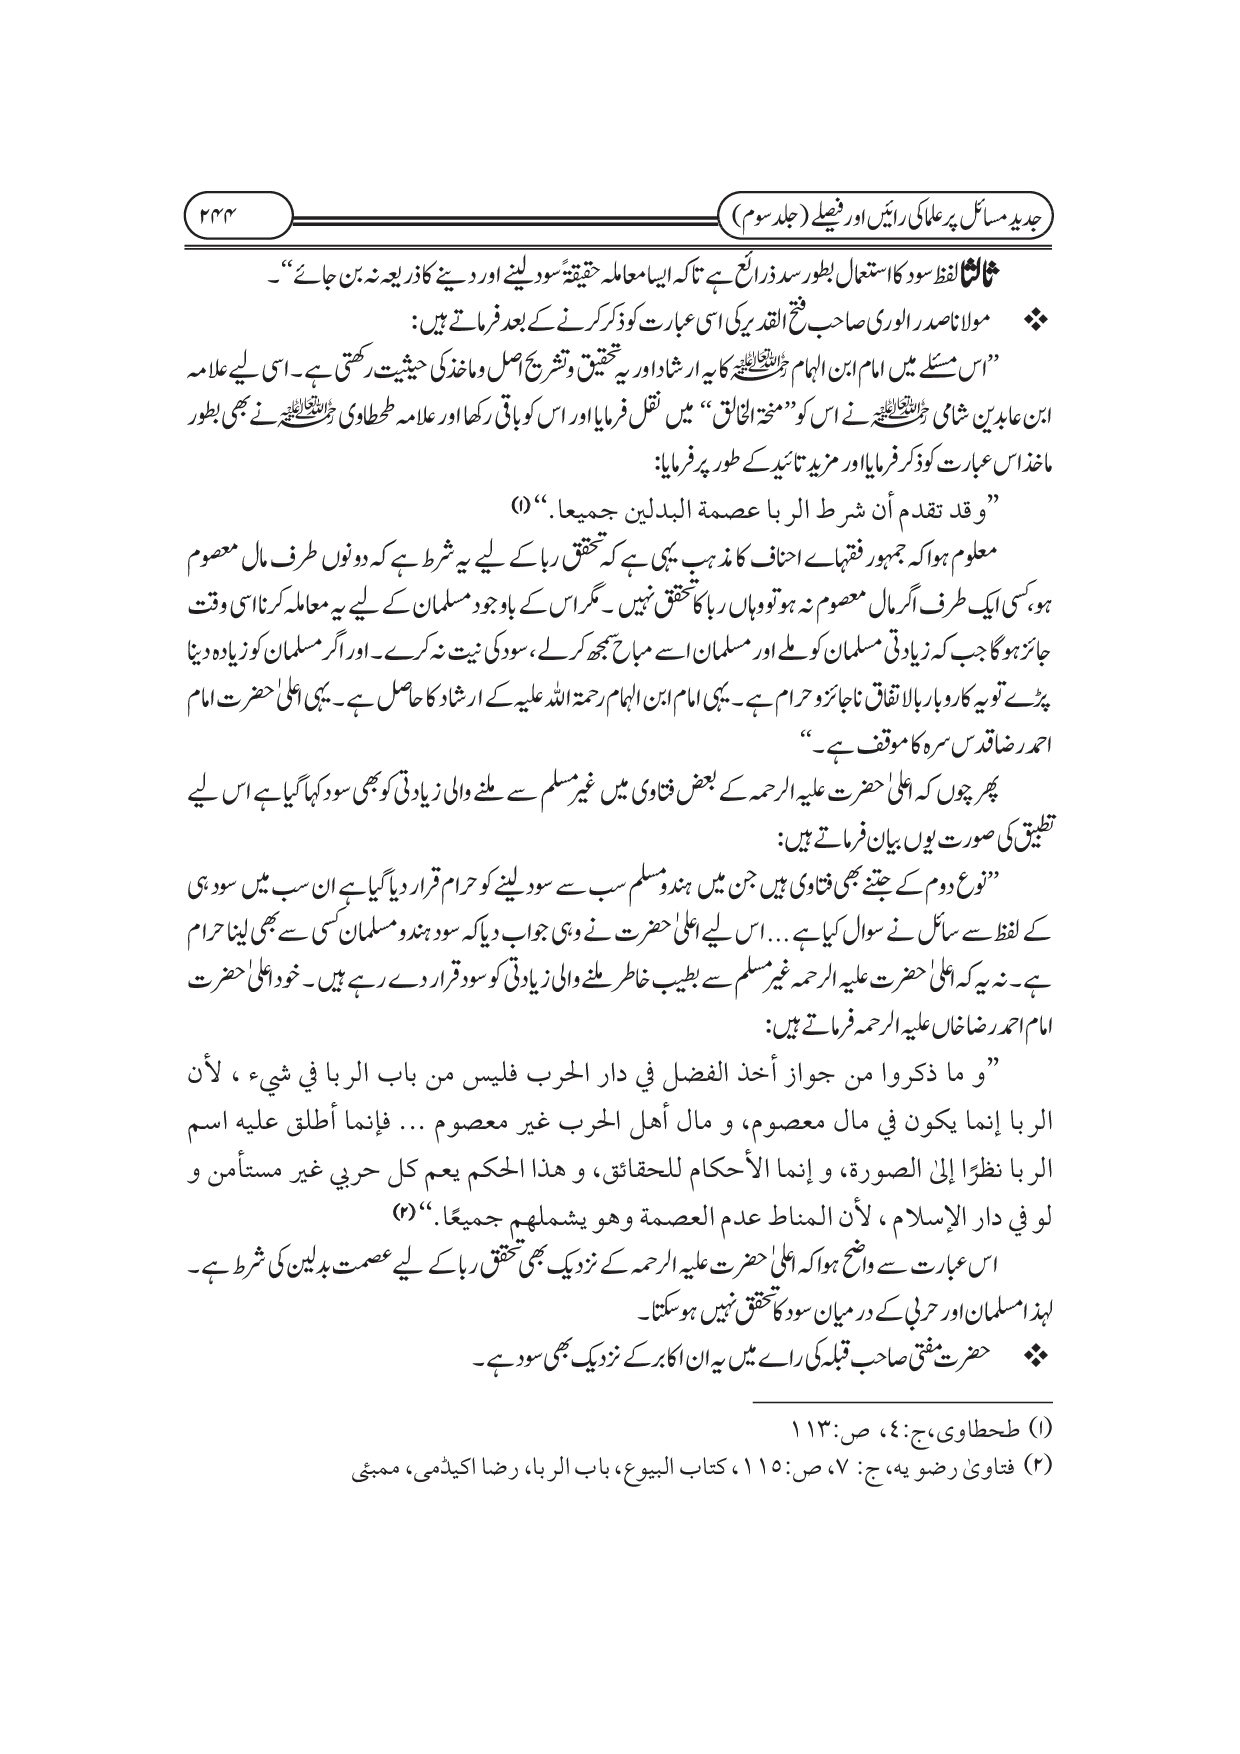 جدید مسائل پر علما کی رائیں اور فیصلے (جلد سوم)
۲۴۴
ثالثاً لفظ سود کا استعمال بطور سد ذرائع ہے تاکہ ایسا معاملہ حقیقۃً سود لینے اور دینے کا ذریعہ نہ بن جائے“۔
❖ مولانا صدر الوری صاحب فتح القدیر کی اسی عبارت کو ذکر کرنے کے بعد فرماتے ہیں:
”اس مسئلے میں امام ابن الہام رحمۃ اللہ تعالیٰ علیہ کا یہ ارشاد اور یہ تحقیق و تشریح اصل و ماخذ کی حیثیت رکھتی ہے۔ اسی لیے علامہ
ابن عابدین شامی رحمۃ اللہ تعالیٰ علیہ نے اس کو ”منحۃ الخالق“ میں نقل فرمایا اور اس کو باقی رکھا اور علامہ طحطاوی رحمۃ اللہ تعالیٰ علیہ نے بھی بطور
ماخذ اس عبارت کو ذکر فرمایا اور مزید تائید کے طور پر فرمایا:
”و قد تقدم أن شرط الربا عصمة البدلين جميعا.“(۱)
معلوم ہوا کہ جمہور فقہاے احناف کا مذہب یہی ہے کہ تحقق ربا کے لیے یہ شرط ہے کہ دونوں طرف مال معصوم
ہو، کسی ایک طرف اگر مال معصوم نہ ہو تو وہاں ربا کا تحقق نہیں۔ مگر اس کے باوجود مسلمان کے لیے یہ معاملہ کرنا اسی وقت
جائز ہوگا جب کہ زیادتی مسلمان کو ملے اور مسلمان اسے مباح سمجھ کر لے، سود کی نیت نہ کرے۔ اور اگر مسلمان کو زیادہ دینا
پڑے تو یہ کاروبار بالاتفاق ناجائز و حرام ہے۔ یہی امام ابن الہام رحمۃ اللہ علیہ کے ارشاد کا حاصل ہے۔ یہی اعلیٰ حضرت امام
احمد رضا قدس سرہ کا موقف ہے۔“
پھر چوں کہ اعلیٰ حضرت علیہ الرحمہ کے بعض فتاوی میں غیر مسلم سے ملنے والی زیادتی کو بھی سود کہا گیا ہے اس لیے
تطبیق کی صورت یوں بیان فرماتے ہیں:
”نوع دوم کے جتنے بھی فتاوی ہیں جن میں ہندو مسلم سب سے سود لینے کو حرام قرار دیا گیا ہے ان سب میں سود ہی
کے لفظ سے سائل نے سوال کیا ہے ... اس لیے اعلیٰ حضرت نے وہی جواب دیا کہ سود ہندو مسلمان کسی سے بھی لینا حرام
ہے۔ نہ یہ کہ اعلیٰ حضرت علیہ الرحمہ غیر مسلم سے بطیب خاطر ملنے والی زیادتی کو سود قرار دے رہے ہیں۔ خود اعلیٰ حضرت
امام احمد رضا خاں علیہ الرحمہ فرماتے ہیں:
”و ما ذكروا من جواز أخذ الفضل في دار الحرب فليس من باب الربا في شيء ، لأن
الربا إنما يكون في مال معصوم، و مال أهل الحرب غير معصوم ... فإنما أطلق عليه اسم
الربا نظرًا إلىٰ الصورة، و إنما الأحكام للحقائق، و هذا الحكم يعم كل حربي غير مستأمن و
لو في دار الإسلام ، لأن المناط عدم العصمة وهو يشملهم جميعًا.“(۲)
اس عبارت سے واضح ہوا کہ اعلیٰ حضرت علیہ الرحمہ کے نزدیک بھی تحقق ربا کے لیے عصمت بدلین کی شرط ہے۔
لہذا مسلمان اور حربی کے درمیان سود کا تحقق نہیں ہو سکتا۔
❖ حضرت مفتی صاحب قبلہ کی راے میں یہ ان اکابر کے نزدیک بھی سود ہے۔
(۱) طحطاوی، ج:٤، ص:١١٣
(۲) فتاویٰ رضویه، ج: ٧، ص:١١٥، کتاب البیوع، باب الربا، رضا اکیڈمی، ممبئی